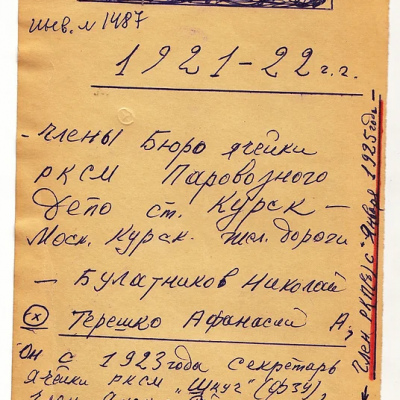 инв. № 1487
1921-22 г.г.
- члены Бюро ячейки
РКСМ Паровозного
Депо ст. Курск -
Моск. Курск. жел. дороги
- Булатников Николай
(x) Терешко Афанасий А,
Он с 1923 года секретарь
ячейки РКСМ „Шкуч" (ФЗУ),
Член РКП(б) с Января 1925 года -